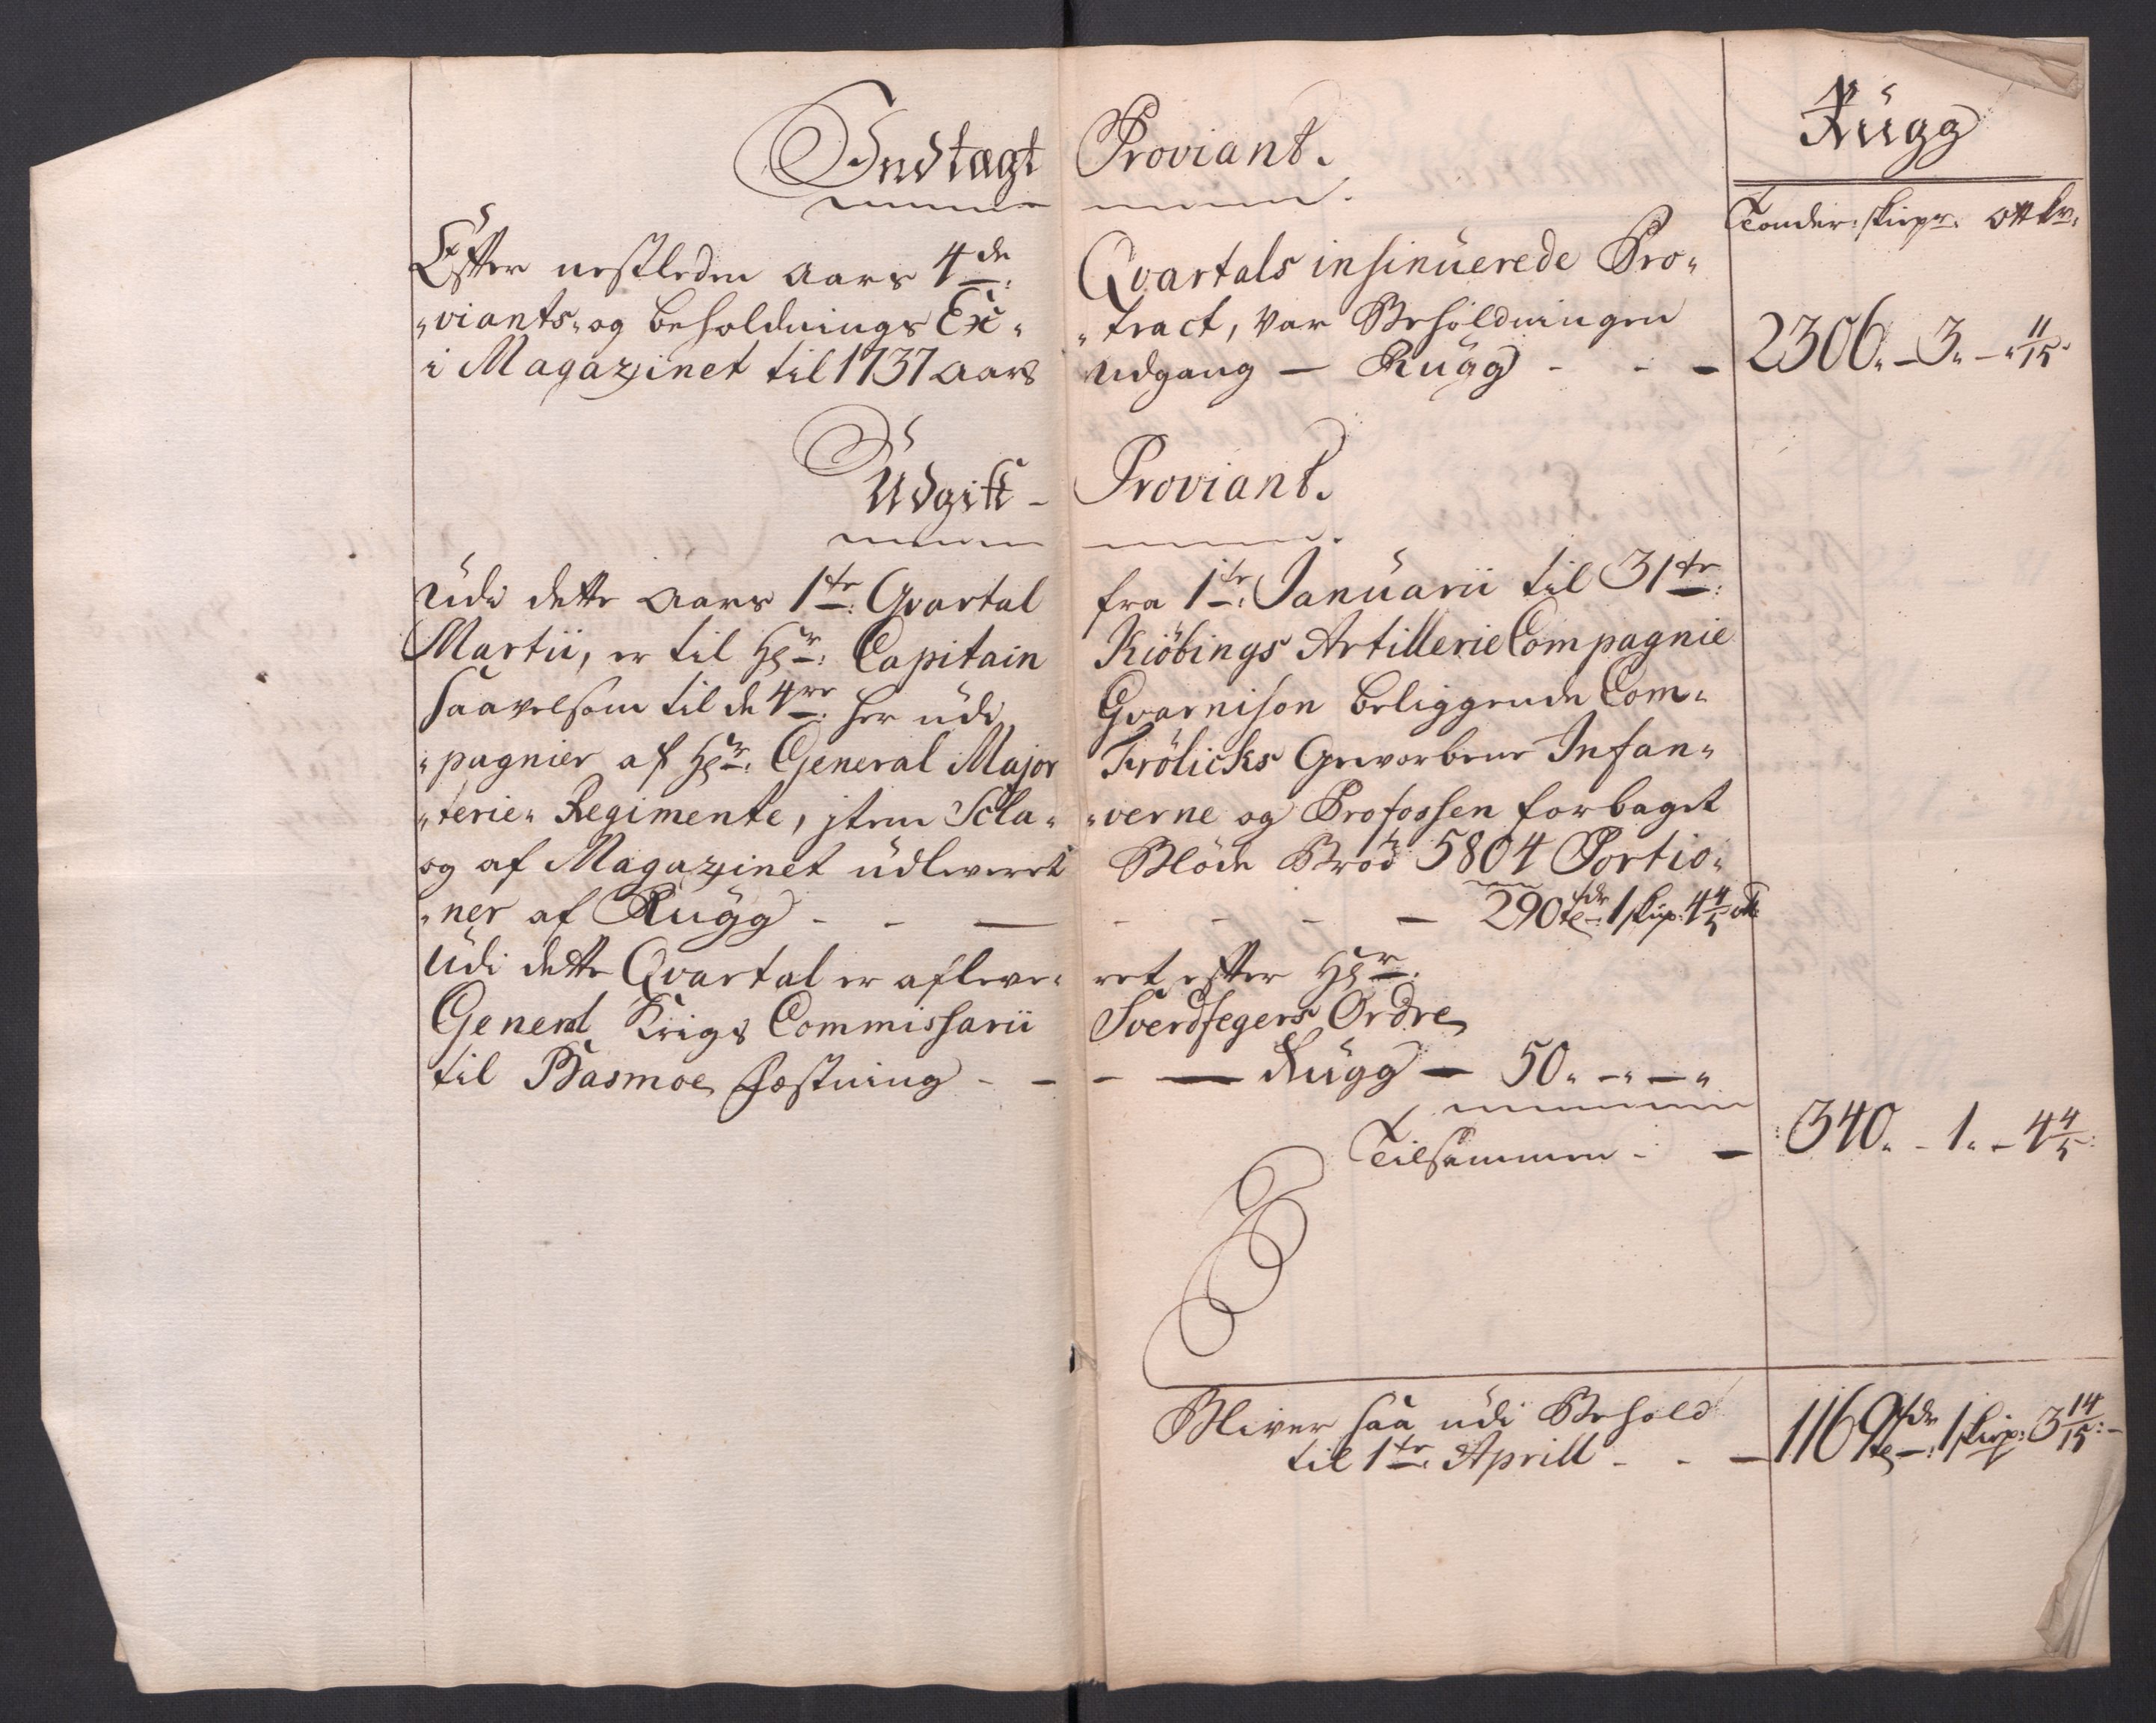 Indtægt Proviant.
Rügg
Tönder: skiepr: ottkr:
Effter nestleden Aars 4de: Qvartals insinüerede Pro„
„viants„ og beholdnings Ex„ „tract, var Beholdningen
i Magazinet til 1737 Aars Udgang — Rügg - - — 2306„ — 3„ — „ 11/15„
Udgift - Proviant.
Udi dette Aars 1te: Qvartal fra 1te: Januarii til 31te:
Martii, er til Hr: Capitain Kiöbings Artillerie Compagnie
saavelsom til de 4re: her udi Gvarnison beliggende Com„
„pagnier af Hr: General Major Frölichs Gevorbene Infan„
„terie„ Regimente, jtem Scla„ „verne og Profossen forbaget
og af Magazinet üdleveret Blöde Bröd 5804 Portio„
„ner af Rügg - - — - - - — 290 tdr: 1 skip: 4 4/5 ott:
Udi dette Qvartal er afleve„ ret effter Hr:
General Krigs Commissarii Sverdfegers Ordre
til Basmoe Fæstning - — - — Rügg — 50„ -„ —„
Tilsammen - — 340„ - 1„ - 4 4/5:
Bliver saa udi Behold
til 1te: Aprill - - — 1169 tdr: 1 skip: 3 14/15: -